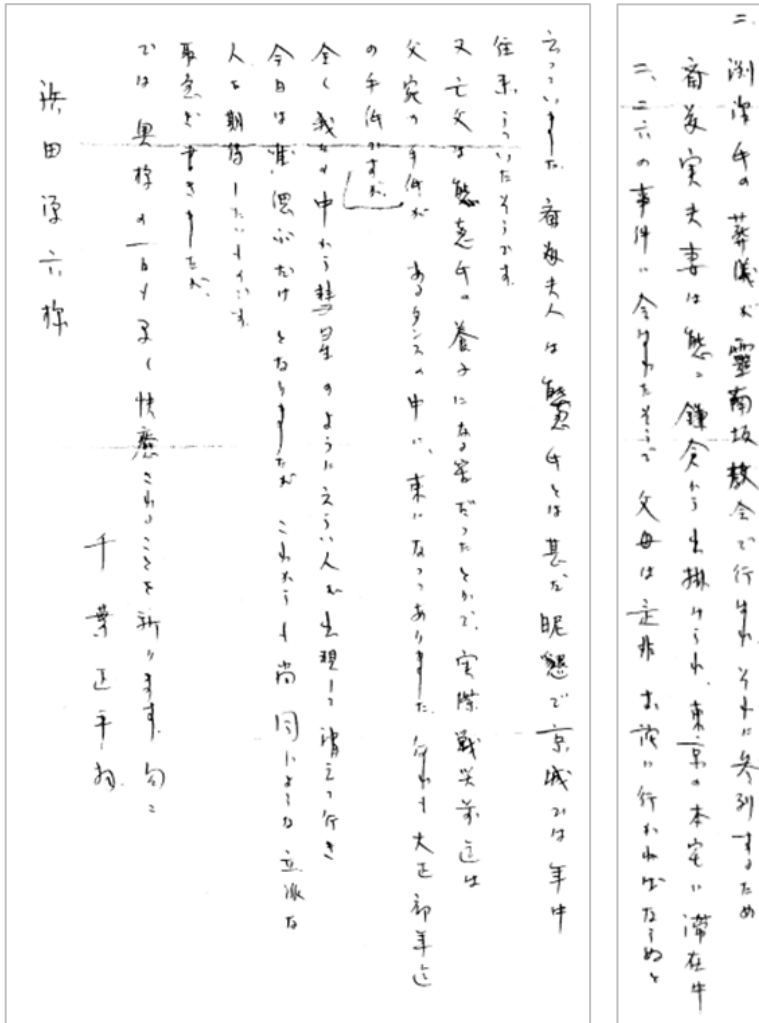 二、渕澤氏の葬儀が霊南坂教会で行はれ、それに参列するため
斎藤実夫妻は態々鎌倉から出掛けられ、東京の本宅に滞在中
二、二六の事件に会はれたそうで 父母は是非お詫に行かねばならぬと
云っていました。斎藤夫人は 氏とは甚だ昵懇で京城では年中
往来していたそうです。
又亡父は 氏の養子になる筈だったとかで、実際戦災前迄は
父宛の手紙が あるタンスの中に、束になってありました。何れも大正初年迄
の手紙ですが。
全く我々の中から彗星のようにえらい人が出現して消えて行き
今日は唯偲ぶだけとなりましたが これからも尚 同じような立派な
人を期待したいものです。
取急ぎ書きましたが、
では奥様の一日も早く快癒されることを祈ります。匆々
千葉正平
浜田源六様